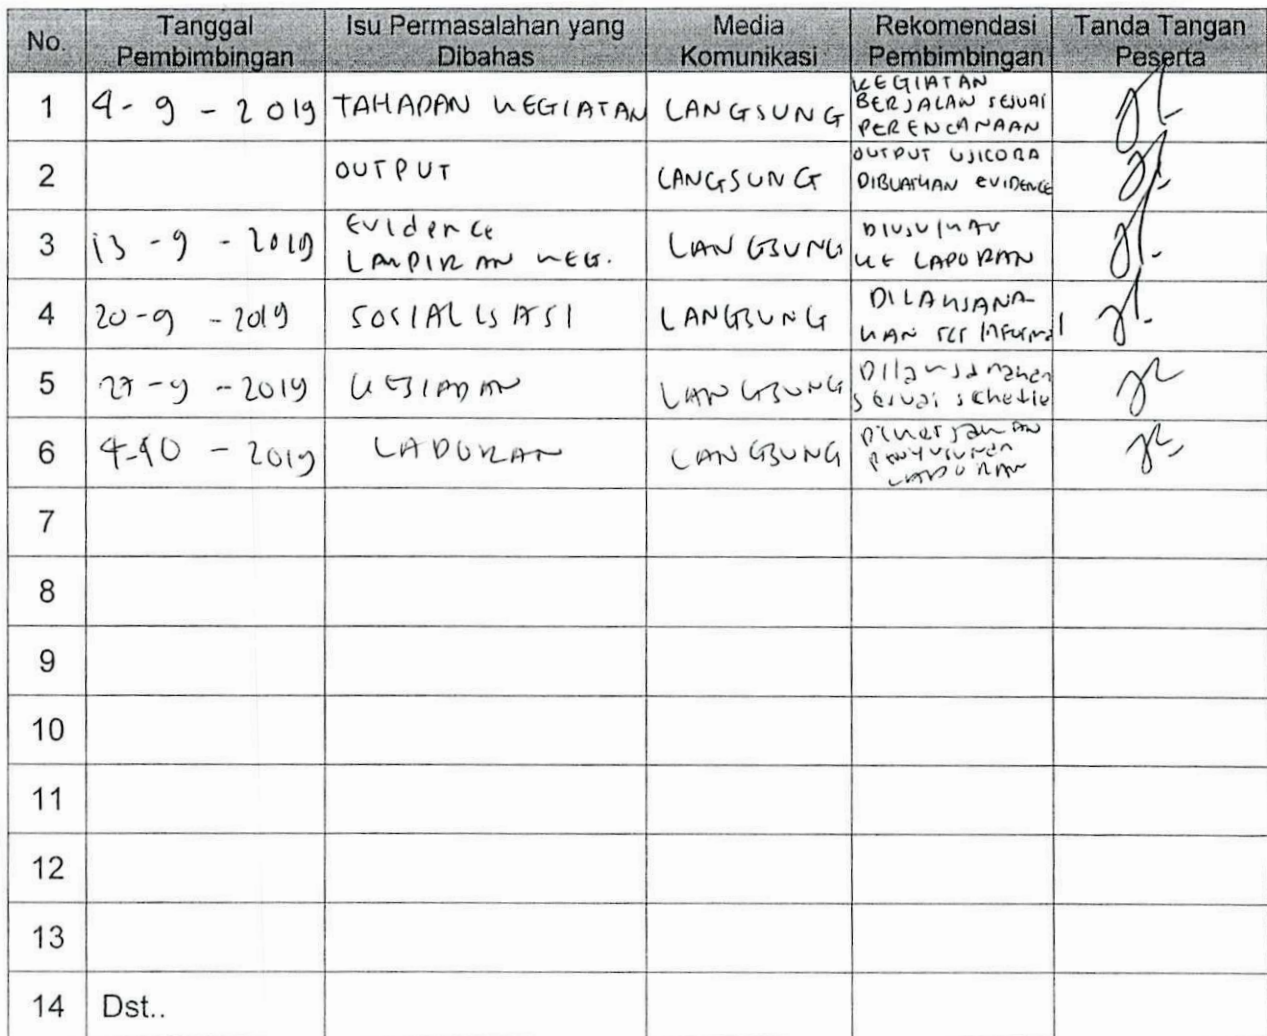 No. Tanggal Pembimbingan Isu Permasalahan yang Dibahas Media Komunikasi Rekomendasi Pembimbingan Tanda Tangan Peserta
1 4-9-2019 TAHAPAN KEGIATAN LANGSUNG KEGIATAN BERJALAN SESUAI PERENCANAAN
2 OUTPUT LANGSUNG OUTPUT UJICOBA DIBUATKAN EVIDENCE
3 13-9-2019 Evidence LAMPIRAN KEG. LANGSUNG KE LAPORAN
4 20-9-2019 SOSIALISASI LANGSUNG DILAKSANAKAN
5 27-9-2019 LANGSUNG Dilaksanakan sesuai
6 4-10-2019 LAPORAN LANGSUNG LAPORAN
7
8
9
10
11
12
13
14 Dst..